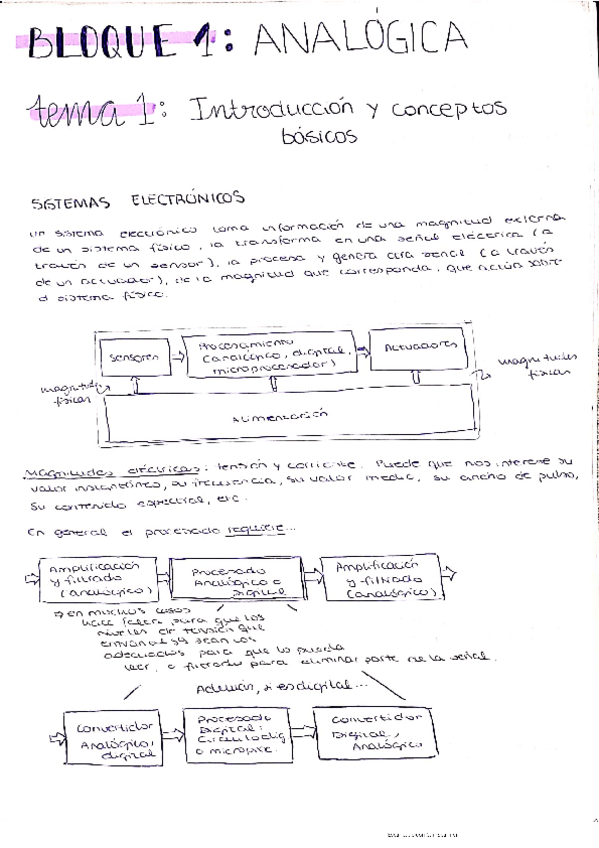 BLOQUE 1: ANALÓGICA
tema 1: Introducción y conceptos
básicos
SISTEMAS ELECTRÓNICOS
un sistema electrónico toma información de una magnitud externa
de un sistema físico, la transforma en una señal eléctrica (a
través de un sensor), la procesa y genera otra señal (a través
de un actuador), de la magnitud que corresponda, que actúa sobre
el sistema físico.
Sensores
Procesamiento
(analógico, digital,
microprocesador)
Actuadores
magnitudes
físicas
magnitudes
físicas
Alimentación
Magnitudes eléctricas: tensión y corriente. Puede que nos interese su
valor instantáneo, su frecuencia, su valor medio, su ancho de pulso,
su contenido espectral, etc.
En general el procesado requiere...
Amplificación
y filtrado
(analógico)
Procesado
Analógico o
Digital
Amplificación
y filtrado
(analógico)
→ en muchos casos
hace falta para que los
niveles de tensión que
sean los
adecuados para que lo pueda
leer, o filtrado para eliminar parte de la señal.
Además, si es digital...
Convertidor
Analógico,
digital
Procesado
Digital:
Circuito dig
o microproc.
Convertidor
Digital,
Analógico